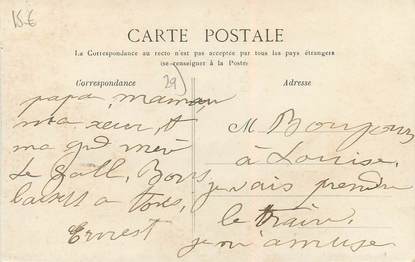 15 €
CARTE POSTALE
La Correspondance au recto n'est pas acceptée par tous les pays étrangers
(se renseigner à la Poste)
Correspondance
29)
Adresse
papa, maman
ma sœur, et
ma gd mère
Bons
baisers a tous,
Ernest
M Bonjour
à Louise,
je vais prendre
le train,
je m'amuse